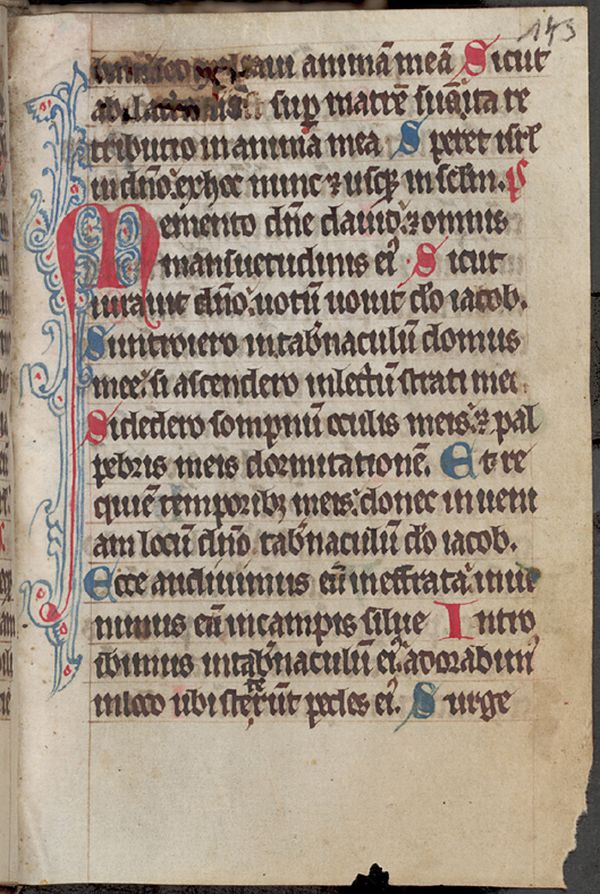 143
animā meā Sicut
sup matrē suā ita re
tributio in anima mea Speret isrl
in dño ex hoc nunc ⁊ usq; in sclm. p
Memento dñe dauid. ⁊ omnis
mansuetudinis ei⁹ Sicut
iurauit dño. uotū uouit do iacob.
Si introiero in tabnaculū domus
mee. si ascendero in lectū strati mei
Si dedero sompnū oculis meis. ⁊ pal
pebris meis dormitationē. Et re
quiē temporib; meis. donec inueni
am locū dño tabnaculū do iacob.
Ecce audiuimus eū in effrata. inue
nimus eū in campis silue Intro
ibimus in tabnaculū ei⁹. adorabim⁹
in loco ubi steterūt pedes ei⁹. Surge